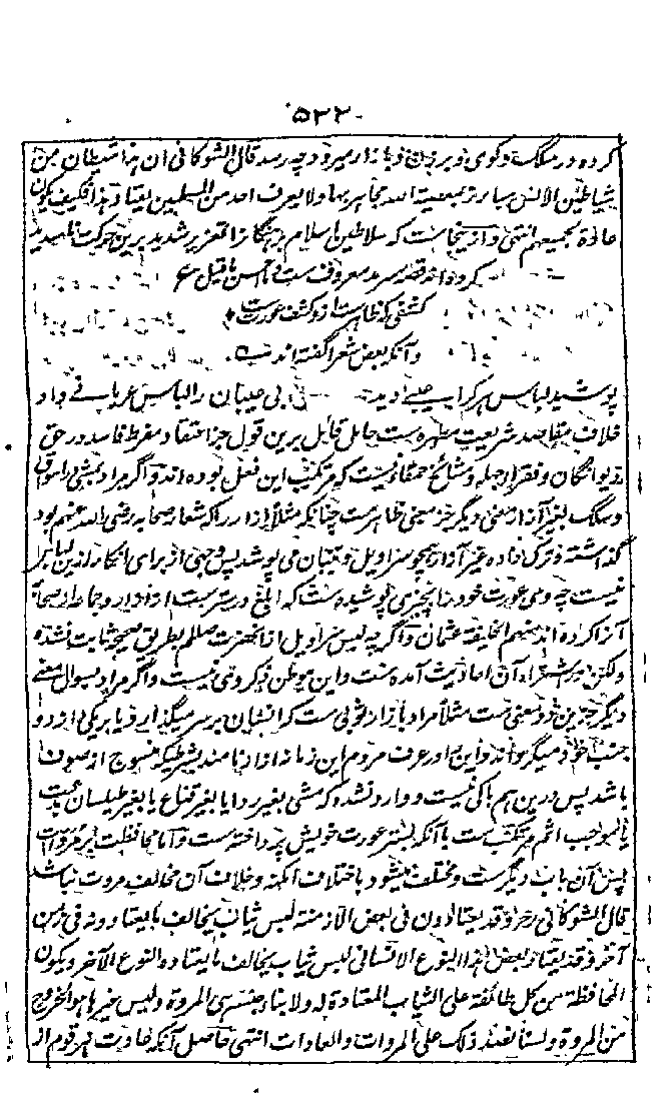 ۵۳۲
کرده در سکک و کوی و برزن و بازار میرود چه رسد قال الشوکانی ان هذا شیطان من
شیاطین الانس مبارز بمعصیة الله مجاهر بها ولا یعرف احد من المسلمین یعتاد هذا فکیف یکون
عادة لجمیعهم انتهی و از ینجاست که سلاطین اسلام را تعزیر شدید برین حرکت
کرده اند قصه سرمد معروف ست ما احسن ما قیل ع
کشفی که ظاهرست ازو کشف عورت ست
و آنکه بعض شعرا گفته اند
پوشید لباس هر کرا عیبی دید بی عیبان را لباس عریانی داد
خلاف مقاصد شریعت مطهره ست حامل قائل برین قول جز اعتقاد مفرط فاسد در حق
دیوانگان و فقرا و جهله و مشائخ حمقا نیست که مرتکب این فعل بوده اند و اگر مراد بمشی در اسواق
و سکک بغیر آزار معنی دیگر جز معنی ظاهرست چنانکه مثلا ازار را که شعار صحابه رضی الله عنهم بود
گذاشته و ترک داده غیر آزار همچو سراویل و تبان می پوشد پس وجهی از برای انکار ازین لباس
نیست چه وی عورت خود را بچیزی پوشیده ست که ابلغ در سترست از ازار و جماعه از صحابه
آنرا کرده اند منهم الخلیفه عثمان و اگر چه لبس سراویل از آنحضرت صلعم بطریق صحیح ثابت نشده
ولکن در شراء آن احادیث آمده ست و این موطن ذکر وی نیست و اگر مراد بسوال معنی
دیگر جز این دو معنی ست مثلا مراد بازار ثوبی ست که انسان بر سر میگذارد یا بر یکی از دو
جنب خود میگرداند و این را در عرف مردم این زمانه ازار نامند بشرطیکه منسوج از صوف
باشد پس درین هم باکی نیست و وارد نشده که مشی بغیر ردا یا بغیر قناع یا بغیر طیلسان
موجب اثم مرتکب ست با آنکه بستر عورت خویش پرداخته ست و اما محافظت بر مروات
پس آن باب دیگرست و مختلف میشود باختلاف امکنه و خلاف آن مخالف مروت نباشد
قال الشوکانی رح و قد یعتادون فی بعض الازمنة لبس ثیاب یخالف ما یعتادونه فی زمن
آخر و قد یعتاد بعض هذا النوع الانسانی لبس ثیاب یخالف ما یعتاده النوع الآخر و یکون
المحافظة من کل طائفة علی الثیاب المعتادة له ولابناء جنسه هی المروة و لبس غیرها هو الخروج
من المروة ولسنا بصدد ذلک علی المروات والعادات انتهی حاصل آنکه عادت هر قوم از